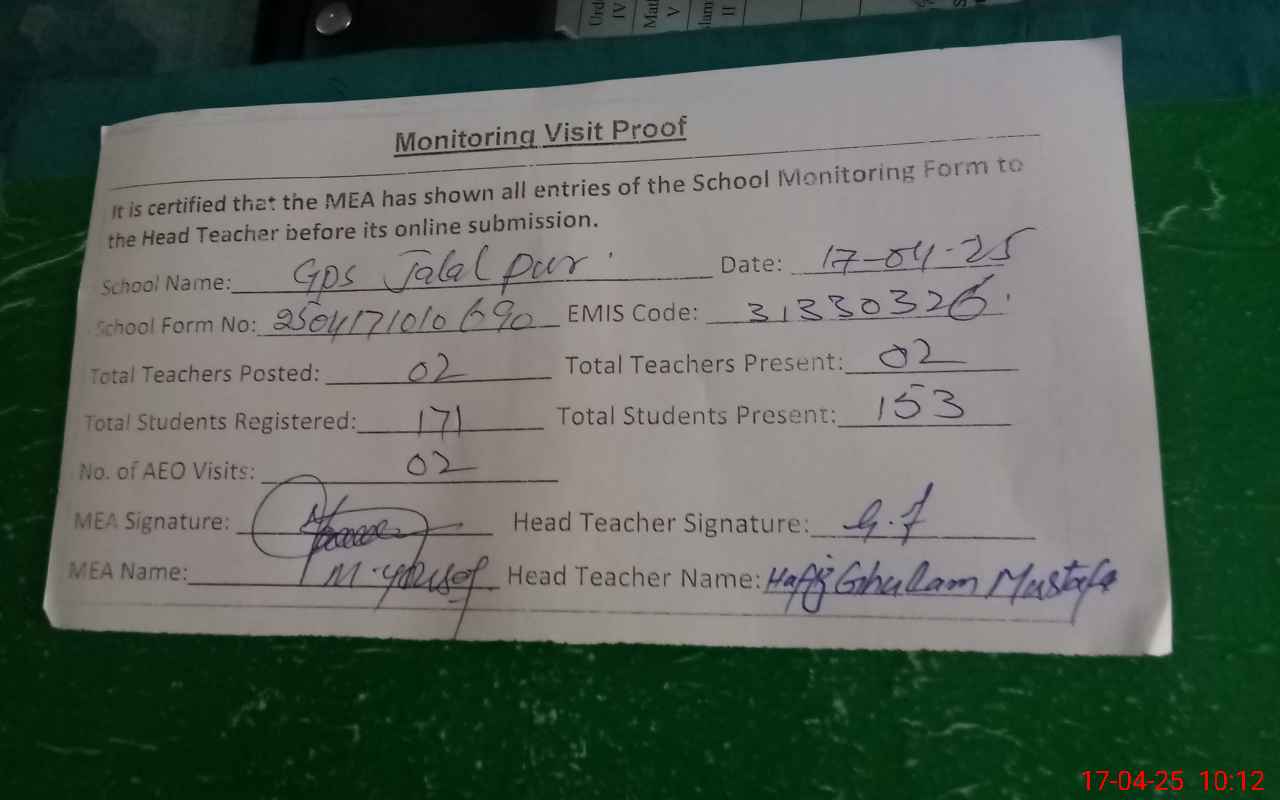 Urd
IV
Mat
V
lam
II
Monitoring Visit Proof
It is certified that the MEA has shown all entries of the School Monitoring Form to
the Head Teacher before its online submission.
School Name: GPS Jalal Pur Date: 17-04-25
School Form No: 2504171010690 EMIS Code: 31330326
Total Teachers Posted: 02 Total Teachers Present: 02
Total Students Registered: 171 Total Students Present: 153
No. of AEO Visits: 02
MEA Signature: Head Teacher Signature:
MEA Name: M. Yousof Head Teacher Name: Hafiz Ghulam Mustafa
17-04-25 10:12